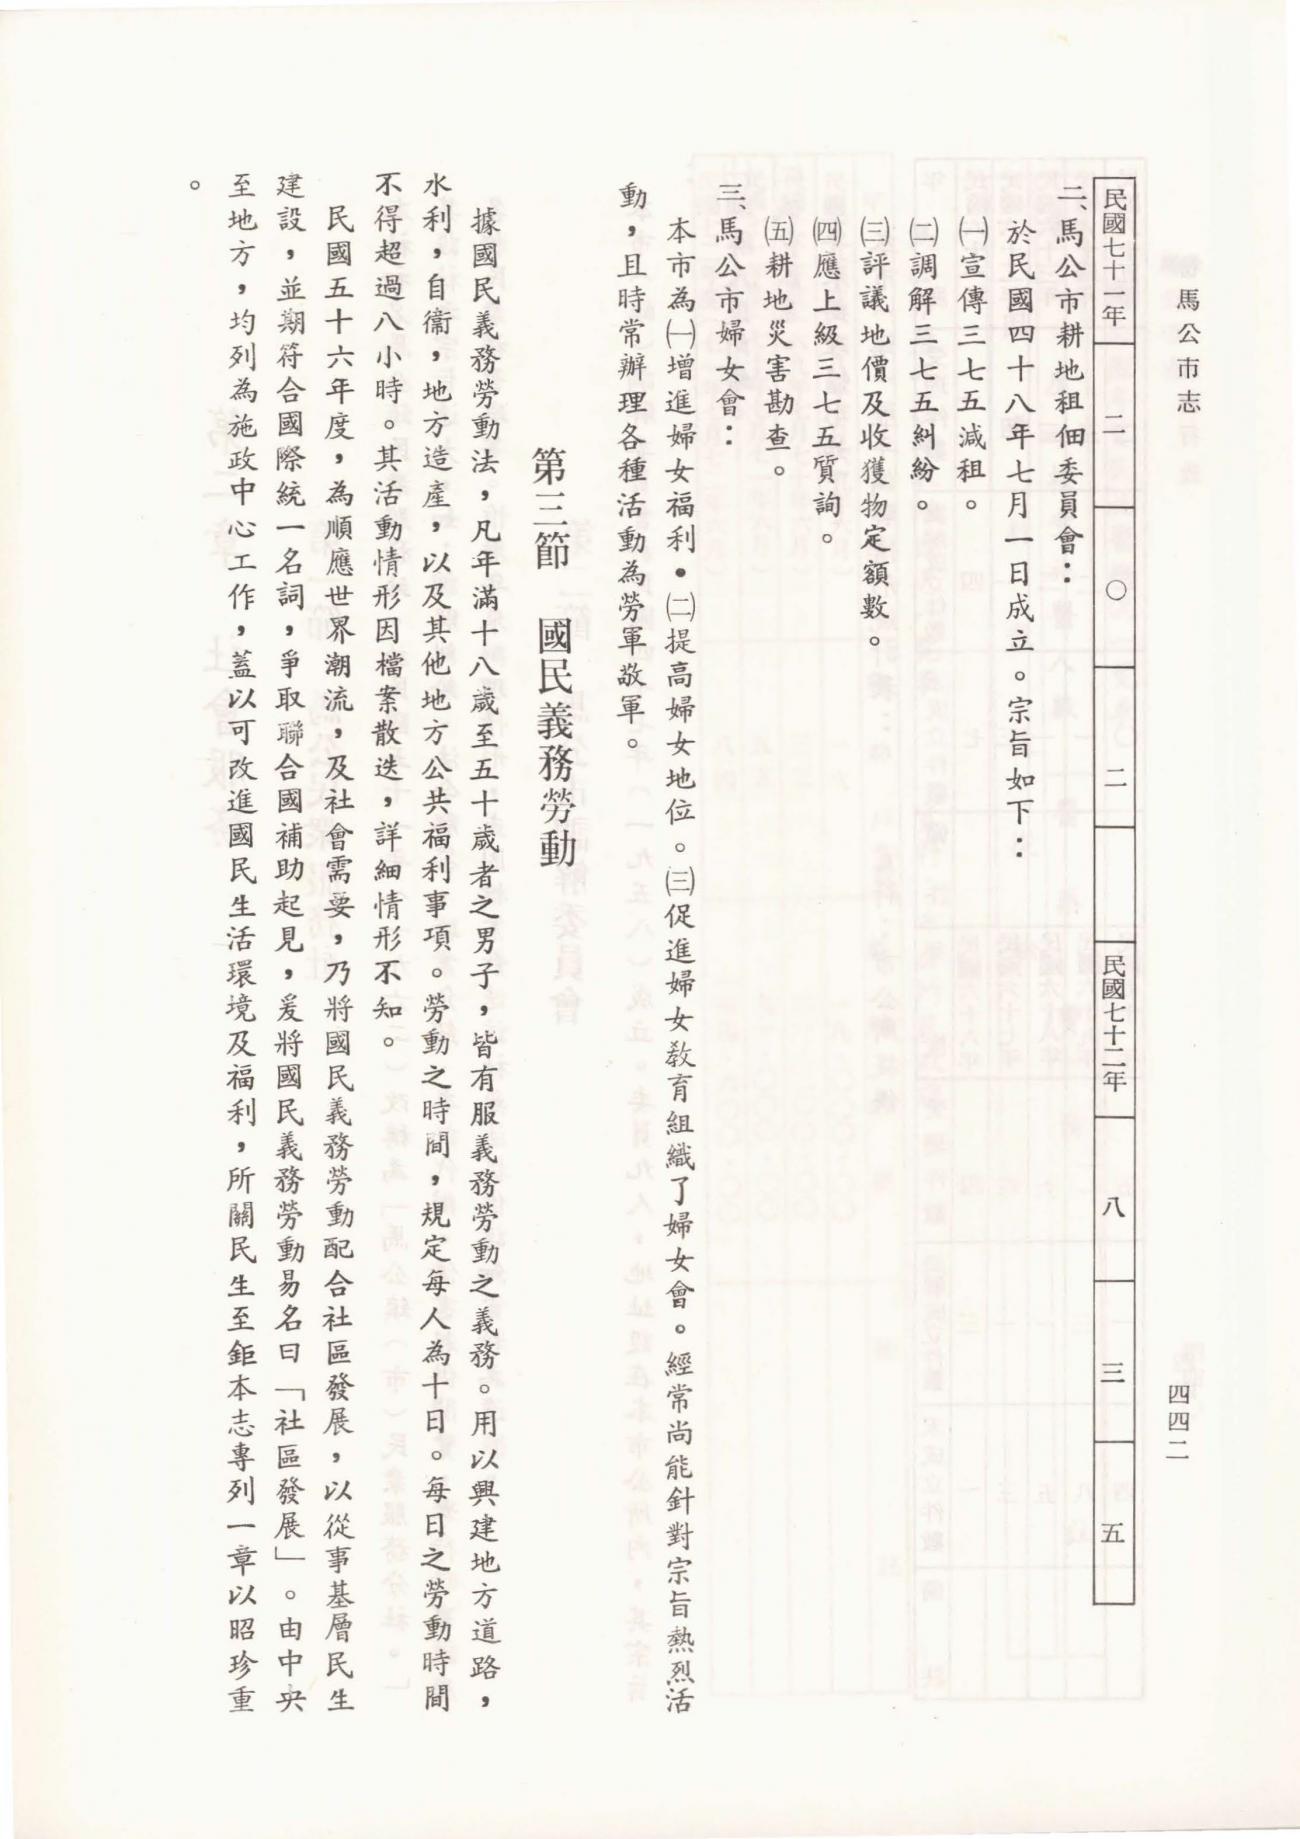 馬公市志
四四二
民國七十一年 二 〇 二 民國七十二年 八 三 五
二、馬公市耕地租佃委員會：
於民國四十八年七月一日成立。宗旨如下：
㈠宣傳三七五減租。
㈡調解三七五糾紛。
㈢評議地價及收獲物定額數。
㈣應上級三七五質詢。
㈤耕地災害勘查。
三、馬公市婦女會：
本市為㈠增進婦女福利•㈡提高婦女地位。㈢促進婦女教育組織了婦女會。經常尚能針對宗旨熱烈活
動，且時常辦理各種活動為勞軍敬軍。
第三節　國民義務勞動
據國民義務勞動法，凡年滿十八歲至五十歲者之男子，皆有服義務勞動之義務。用以興建地方道路，
水利，自衞，地方造產，以及其他地方公共福利事項。勞動之時間，規定每人為十日。每日之勞動時間
不得超過八小時。其活動情形因檔案散迭，詳細情形不知。
民國五十六年度，為順應世界潮流，及社會需要，乃將國民義務勞動配合社區發展，以從事基層民生
建設，並期符合國際統一名詞，爭取聯合國補助起見，爰將國民義務勞動易名曰「社區發展」。由中央
至地方，均列為施政中心工作，蓋以可改進國民生活環境及福利，所關民生至鉅本志專列一章以昭珍重
。